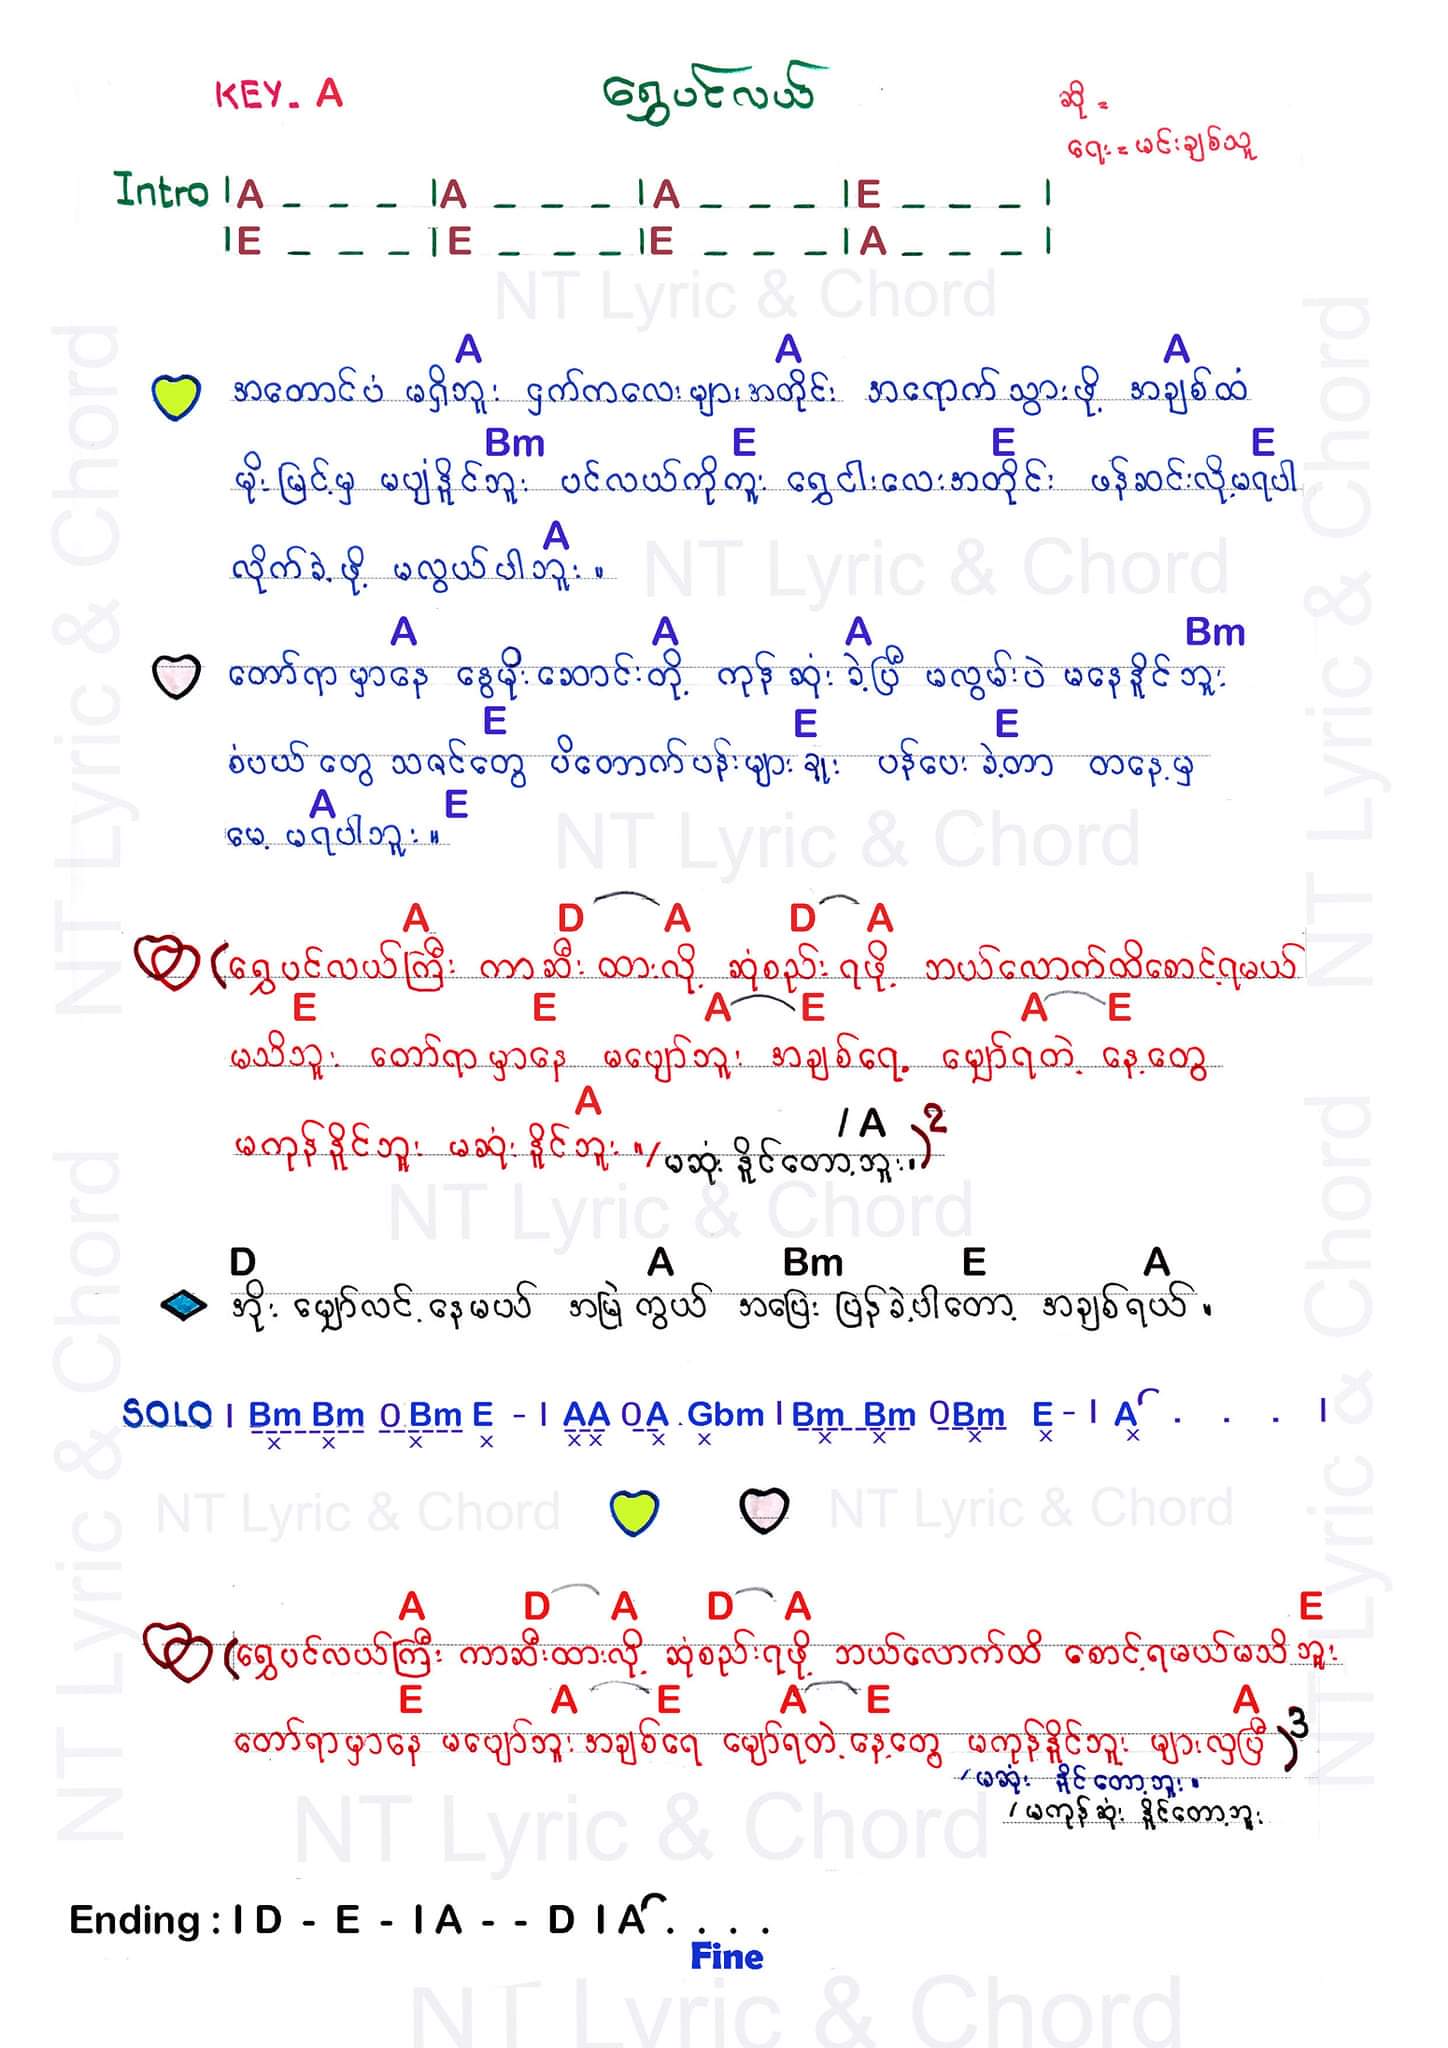 KEY. A
ရွှေပင်လယ်
ဆို =
ရေး = မင်းချစ်သူ
Intro | A _ _ _ | A _ _ _ | A _ _ _ | E _ _ _ |
| E _ _ _ | E _ _ _ | E _ _ _ | A _ _ _ |
NT Lyric & Chord
A A A
အတောင်ပံ မရှိဘူး ငှက်ကလေးများအတိုင်း အရောက်သွားဖို့ အချစ်ထံ
Bm E E E
မိုးမြင့်မှ မပျံနိူင်ဘူး ပင်လယ်ကိုကူး ရွှေငါးလေးအတိုင်း ဖန်ဆင်းလို့မရပါ
A
လိုက်ခဲ့ဖို့ မလွယ်ပါဘူး။
NT Lyric & Chord
A A A Bm
တော်ရာမှာနေ နွေမိုးဆောင်းတို့ ကုန်ဆုံးခဲ့ပြီ မလွမ်းပဲ မနေနိူင်ဘူး
E E E
စံပယ်တွေ သဇင်တွေ ပိတောက်ပန်းများချူး ပန်ပေးခဲ့တာ တနေ့မှ
A E
မေ့မရပါဘူး။
NT Lyric & Chord
A D A D A
(ရွှေပင်လယ်ကြီး ကာဆီးထားလို့ ဆုံစည်းရဖို့ ဘယ်လောက်ထိစောင့်ရမယ်
E E A E A E
မသိဘူး တော်ရာမှာနေ မပျော်ဘူး အချစ်ရေ့ မျှော်ရတဲ့ နေ့တွေ
A / A
မကုန်နိူင်ဘူး မဆုံးနိူင်ဘူး။ / မဆုံးနိူင်တော့ဘူး။)2
NT Lyric & Chord
D A Bm E A
အိုး မျှော်လင့်နေမယ် အမြဲကွယ် အပြေးပြန်ခဲ့ပါတော့ အချစ်ရယ်။
SOLO | Bm Bm 0 Bm E - | AA 0 A . Gbm | Bm Bm 0Bm E - | A . . . |
x x x x x x x x x x x x x
NT Lyric & Chord NT Lyric & Chord
A D A D A E
(ရွှေပင်လယ်ကြီး ကာဆီးထားလို့ ဆုံစည်းရဖို့ ဘယ်လောက်ထိ စောင့်ရမယ်မသိဘူး
E A E A E A
တော်ရာမှာနေ မပျော်ဘူးအချစ်ရေ မျှော်ရတဲ့နေ့တွေ မကုန်နိူင်ဘူး များလှပြီ)3
/ မဆုံး နိူင်တော့ဘူး။
/ မကုန်ဆုံး နိူင်တော့ဘူး
NT Lyric & Chord
Ending : | D - E - | A - - D | A . . . .
Fine
NT Lyric & Chord
NT Lyric & Chord
NT Lyric & Chord
NT Lyric & Chord
NT Lyric & Chord